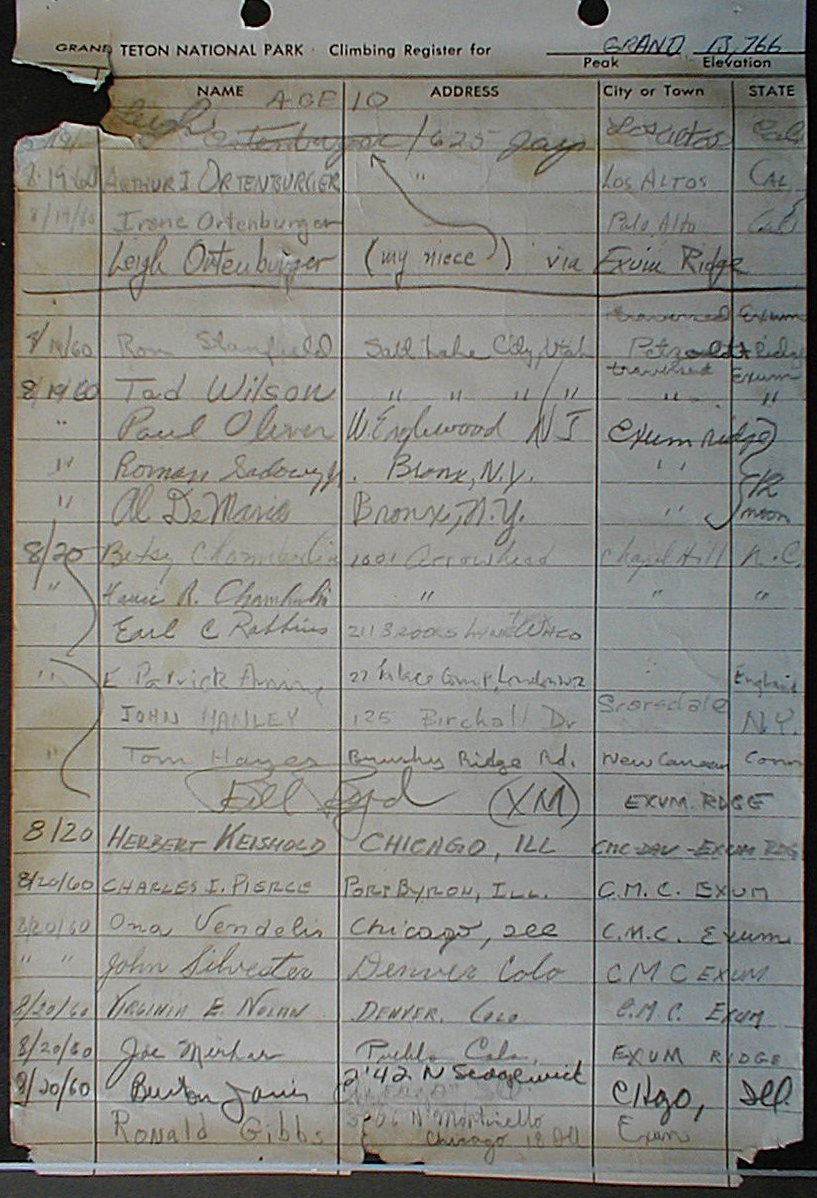 GRAND TETON NATIONAL PARK · Climbing Register for GRAND 13,766
Peak Elevation
NAME ADDRESS City or Town STATE
AGE 10
Leigh Ortenburger 1625 Jays Los Altos Cal
8-19 60 ARTHUR I ORTENBURGER " LOS ALTOS CAL
8/19/60 Irene Ortenburger Palo Alto Cal
Leigh Ortenburger (my niece) via Exum Ridge
traversed Exum
8/19/60 Ron Stanfield Salt Lake City, Utah Petzoldt Ridge
traversed Exum
8/19/60 Tad Wilson " " " " " "
" Paul Oliver W. Englewood NJ Exum ridge
" Roman Sadowy Jr. Bronx, N.Y. " "
" Al DeMaria Bronx, N.Y. " 12 noon
8/20 Betsy Chamberlin 1601 Arrowhead Chapel Hill N.C.
" R. Chamberlin " " "
Earl C Robbins 211 BROOKS WACO
" E Patrick 27 Palace Court, London W2 England
JOHN HANLEY 125 Birchall Dr Scarsdale N.Y.
" Tom Hayes Brushy Ridge Rd. New Canaan Conn
Bill Byrd (XM) EXUM RDGE
8/20 HERBERT KEISHOLD CHICAGO, ILL CMC-DAV-EXUM RDG
8/20/60 CHARLES I. PIERCE PORT BYRON, ILL. C.M.C. EXUM
8/20/60 Ona Vendelis Chicago, Ill C.M.C. Exum
" " John Silvester Denver Colo CMC EXUM
8/20/60 VIRGINIA E. NOLAN DENVER, COLO C.M.C. EXUM
8/20/60 Joe Pueblo Colo, EXUM RIDGE
8/20/60 Burton Janis 2142 N Sedgewick Chgo, Ill.
Ronald Gibbs N Chicago 18 Ill Exum